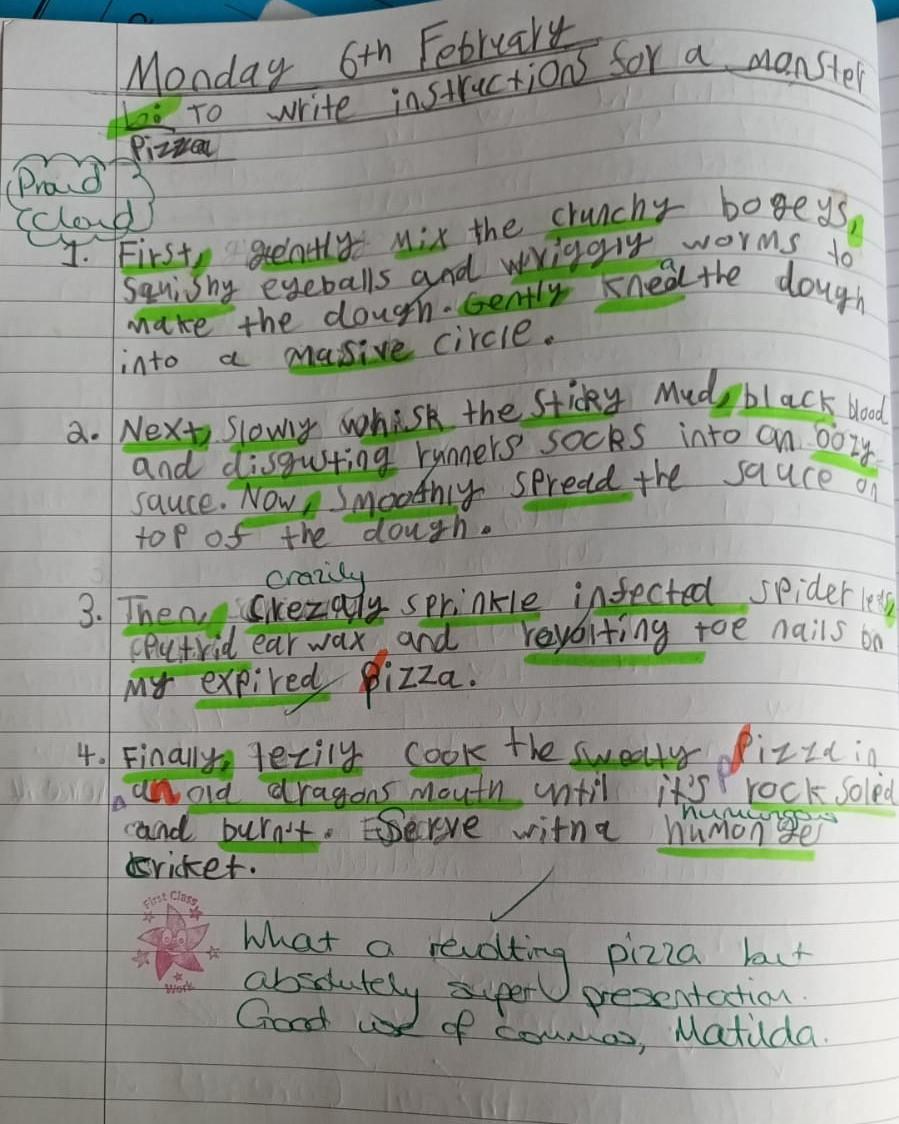 Monday 6th February
Lo: To write instructions for a monster
Pizza
Proud
Cloud
1. First, gently mix the crunchy bogeys,
Squishy eyeballs and wriggly worms to
make the dough. Gently knead the dough
into a masive circle.
2. Next, slowly whisk the sticky Mud, black blood
and disgusting runners socks into an oozy
sauce. Now, smoothly spread the sauce on
top of the dough.
crazily
3. Then, crezaly sprinkle infected spider legs,
putrid ear wax and revolting toe nails on
my expired pizza.
4. Finally, lezily cook the sweaty pizza in
an old dragons mouth until it's rock soled
humungous
and burnt. Serve with a humonges
cricket.
First Class
Work
What a revolting pizza but
absolutely super presentation.
Good use of commas, Matilda.